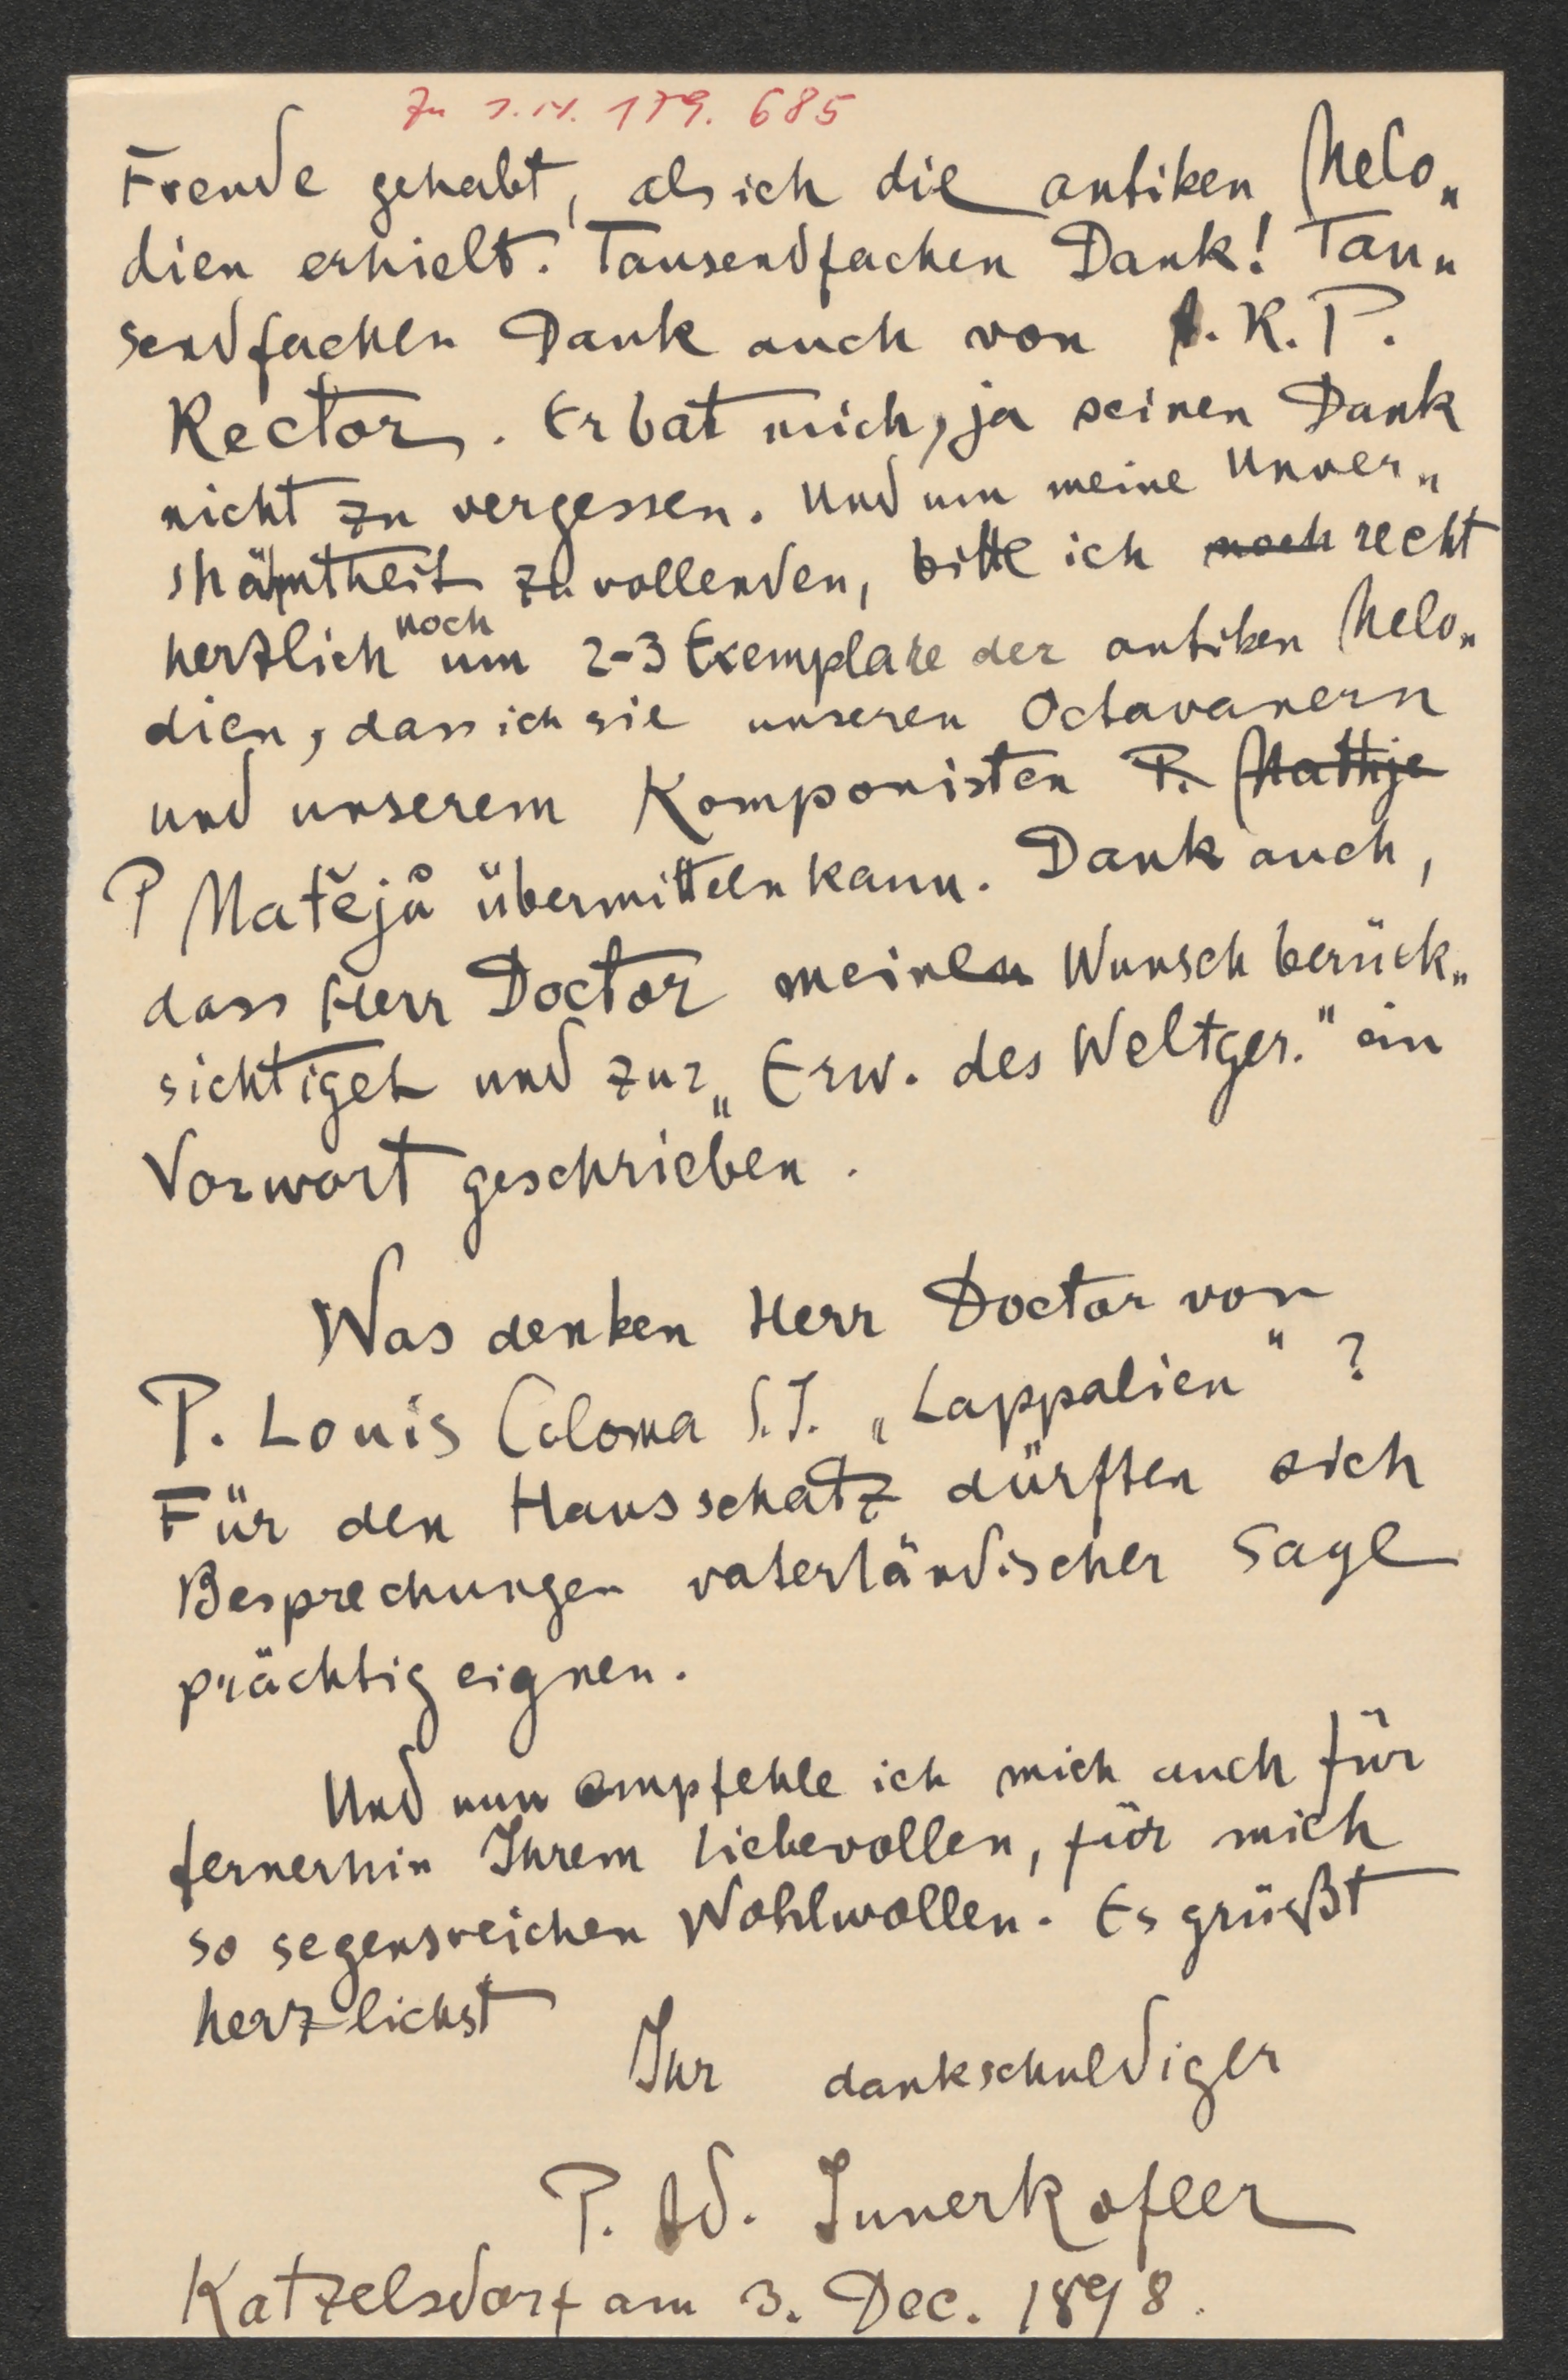 Zu I.N. 179.685
Freude gehabt, als ich die antiken Melo„
dien erhielt. Tausendfachen Dank! Tau„
sendfachen Dank auch von A. R. P.
Rector. Er bat mich, ja seinen Dank
nicht zu vergessen. Und um meine Unver„
shämtheit zu vollenden, bitte ich noch recht
herzlich noch um 2-3 Exemplare der antiken Melo„
dien, dass ich sie unseren Octavanern
und unserem Komponisten P. Mathje
P Matějů übermitteln kann. Dank auch,
dass Herr Doctor meinen Wunsch berück„
sichtiget und zur „Erw. des Weltger." ein
Vorwort geschrieben.
Was denken Herr Doctor von
P. Louis Coloma S.J. „Lappalien" ?
Für den Hausschatz dürften sich
Besprechungen vaterländischer Sage
prächtig eignen.
Und nun empfehle ich mich auch für
fernerhin Ihrem liebevollen, für mich
so segensreichen Wohlwollen. Es grüßt
herzlichst
Ihr dankschuldiger
P. Ad. Innerkofler
Katzelsdorf am 3. Dec. 1898.